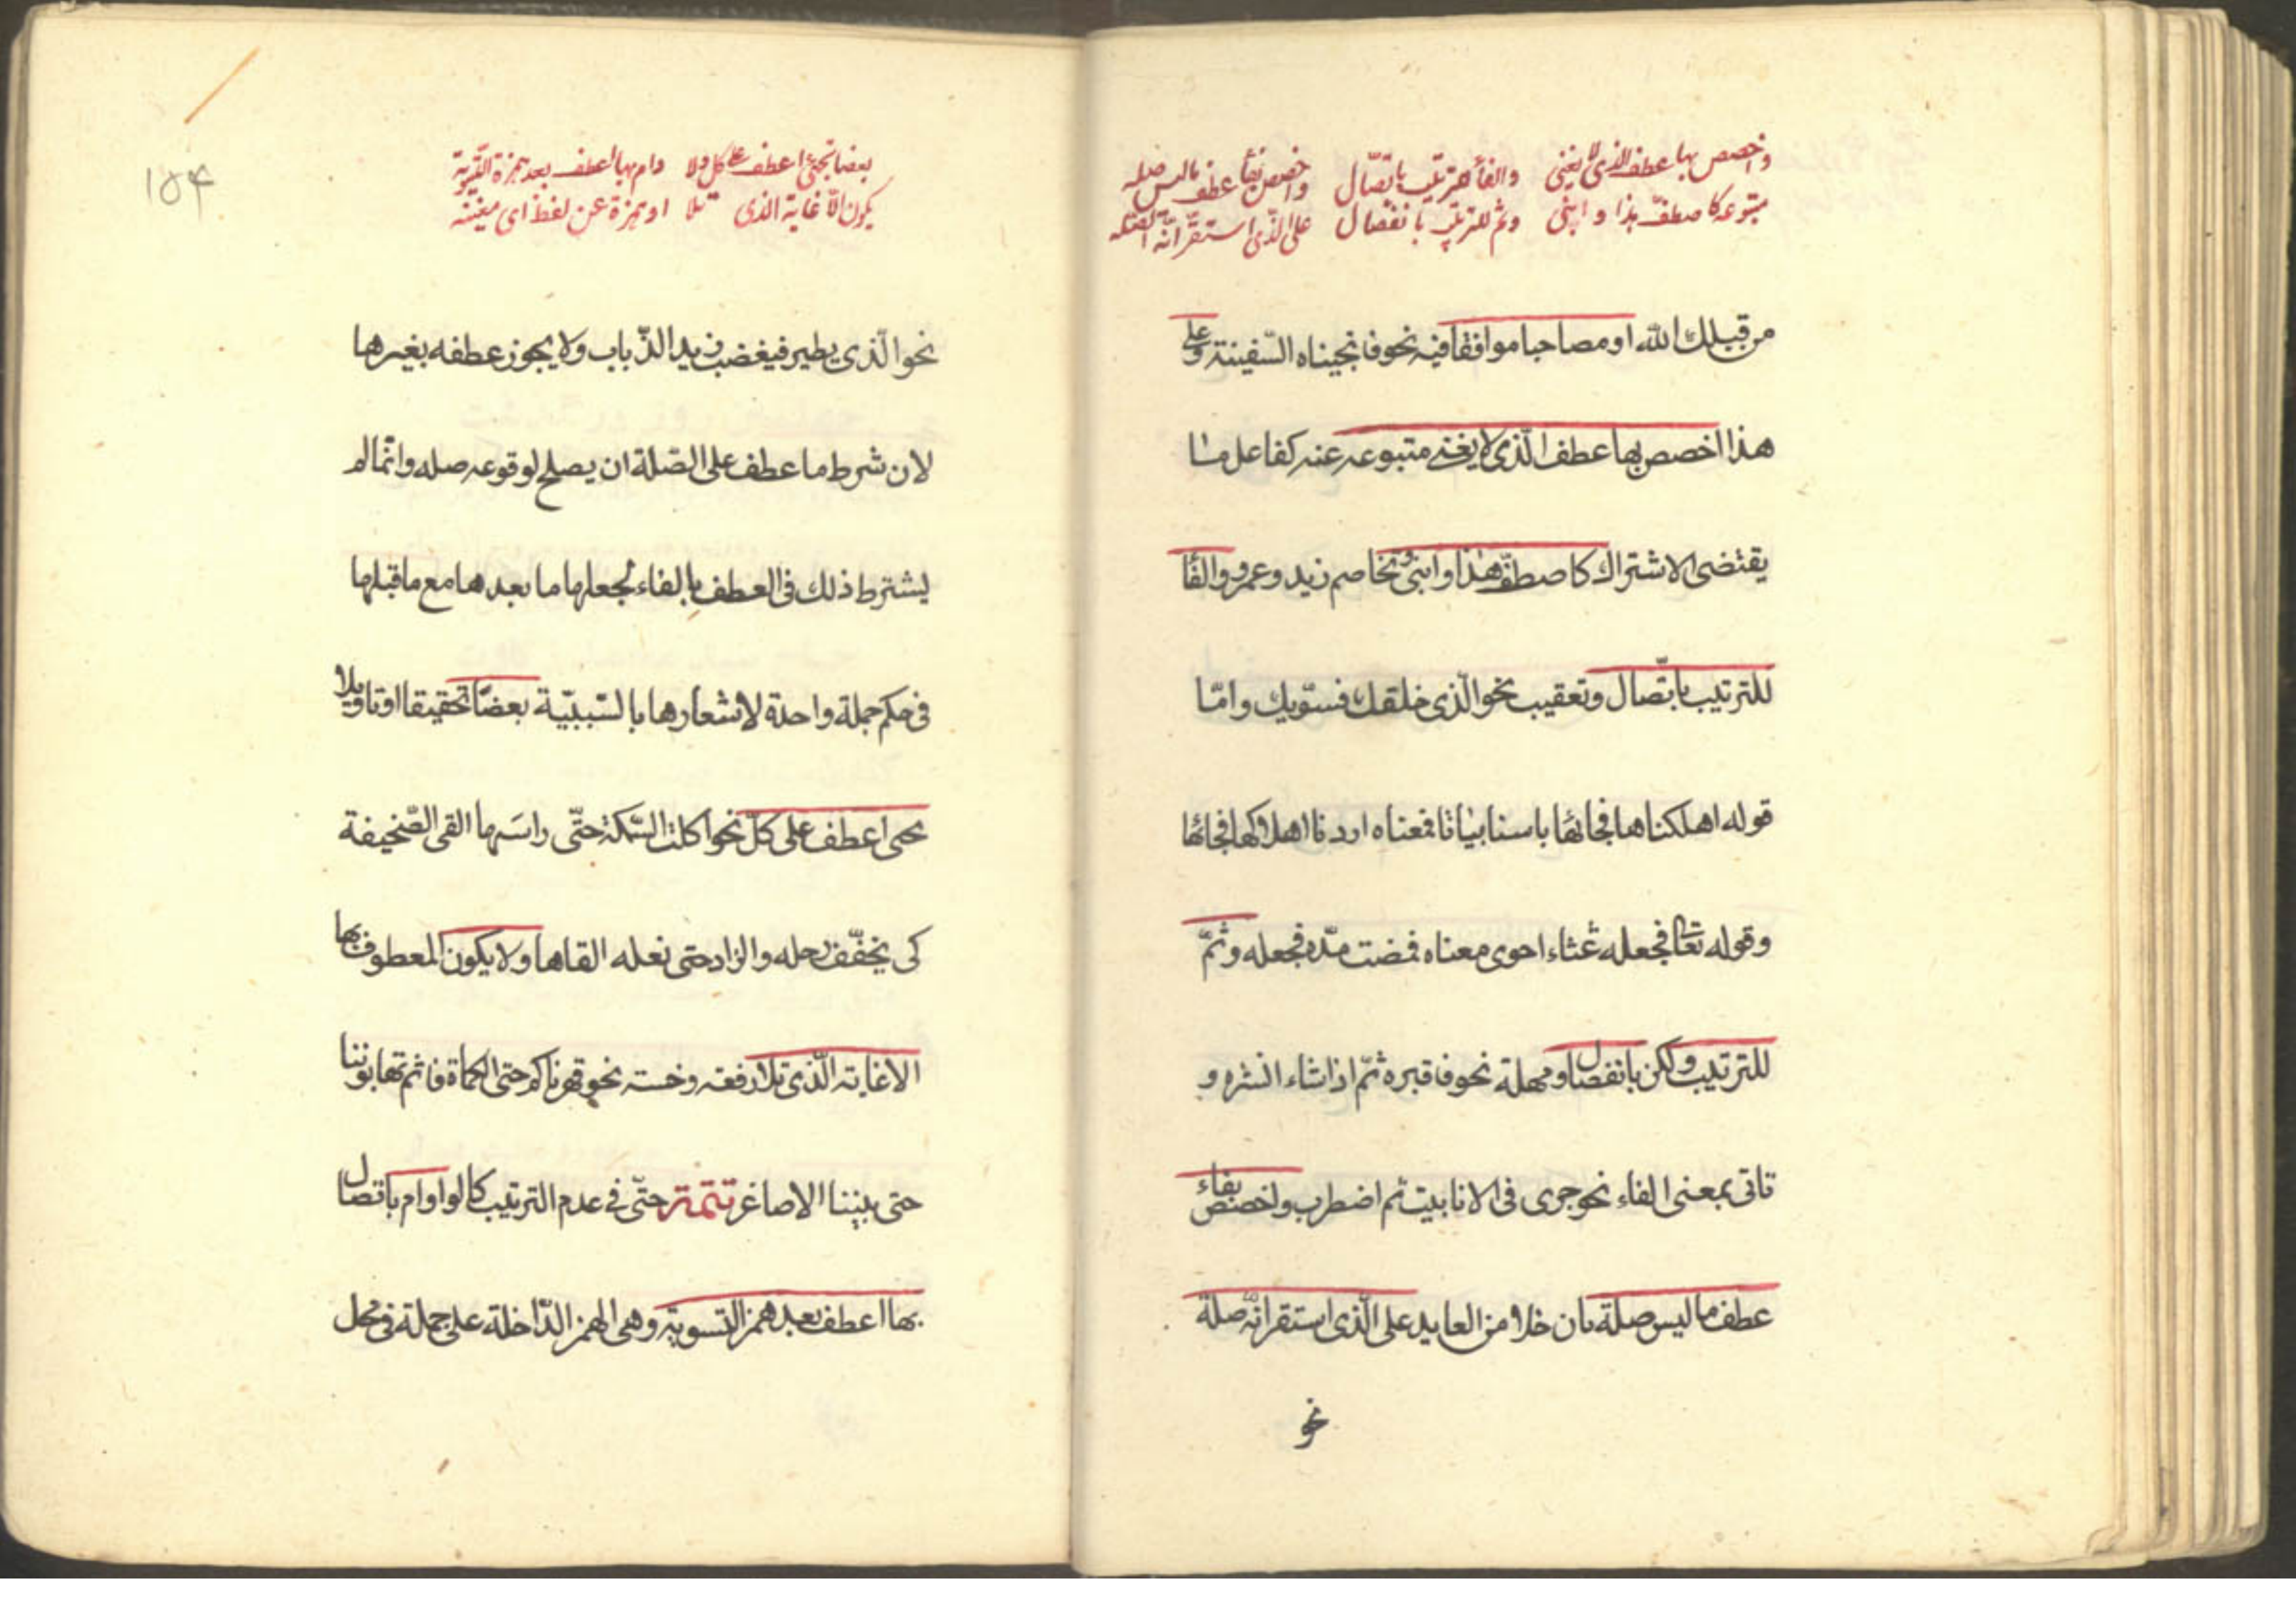 واخصص بها عطف الذی لا یغنی والفاء للترتیب باتّصال واخصص بفاء عطف مالیس صله
متبوعه کاصطفّ هذا وابنی وثم للترتیب بانفصال علی الّذی استقرّ انّه الصّله
من قبلك الله او مصاحبا موافقا فیه نحو فانجیناه السّفینة وعلی
هذا اخصص بها عطف الّذی لا یغنی متبوعه عنه کفاعل ما
یقتضی الاشتراك کاصطفّ هذا وابنی وتخاصم زید وعمرو والفا
للترتیب باتّصال وتعقیب نحو الّذی خلقك فسوّیك وامّا
قوله اهلکناها فجائها باسنا بیاتا فمعناه اردنا اهلاکها فجائها
وقوله تعا فجعله غثاء احوی معناه فمضت مدّه فجعله وثمّ
للترتیب ولکن بانفصال ومهلة نحو فاقبره ثمّ اذا شاء انشره و
تاتی بمعنی الفاء نحو جری فی الانابیب ثم اضطرب واخصص بفاء
عطف ما لیس صلة بان خلا من العاید علی الّذی استقر انّه صلة
نحو
۱۵۴
بعضا بحتّی اعطف علی کل ولا وام بها اعطف بعد همزة التّسویة
یکون الّا غایة الذی تلا او همزة عن لفظ ای مغنیه
نحو الّذی یطیر فیغضب زید الذّباب ولا یجوز عطفه بغیرها
لان شرط ما عطف علی الصّلة ان یصلح لوقوعه صله وانّما لم
یشترط ذلك فی العطف بالفاء لجعلها ما بعدها مع ما قبلها
فی حکم جملة واحدة لاشعارها بالسّببیّة بعضا تحقیقا او تاویلا
بحتی اعطف علی کلّ نحو اکلت السّمکة حتّی راسَها القی الصّحیفة
کی یخفّف رحله والزاد حتی نعله القاها ولا یکون المعطوف بها
الا غایة الّذی تلا رفعة وخسة نحو قهرناکم حتی الکماة فانتم تهابوننا
حتی بنیننا الاصاغر تتمة حتّی فی عدم الترتیب کالواو وام باتصال
بها اعطف بعد همز التسویة وهی الهمز الدّاخلة علی جملة فی محل